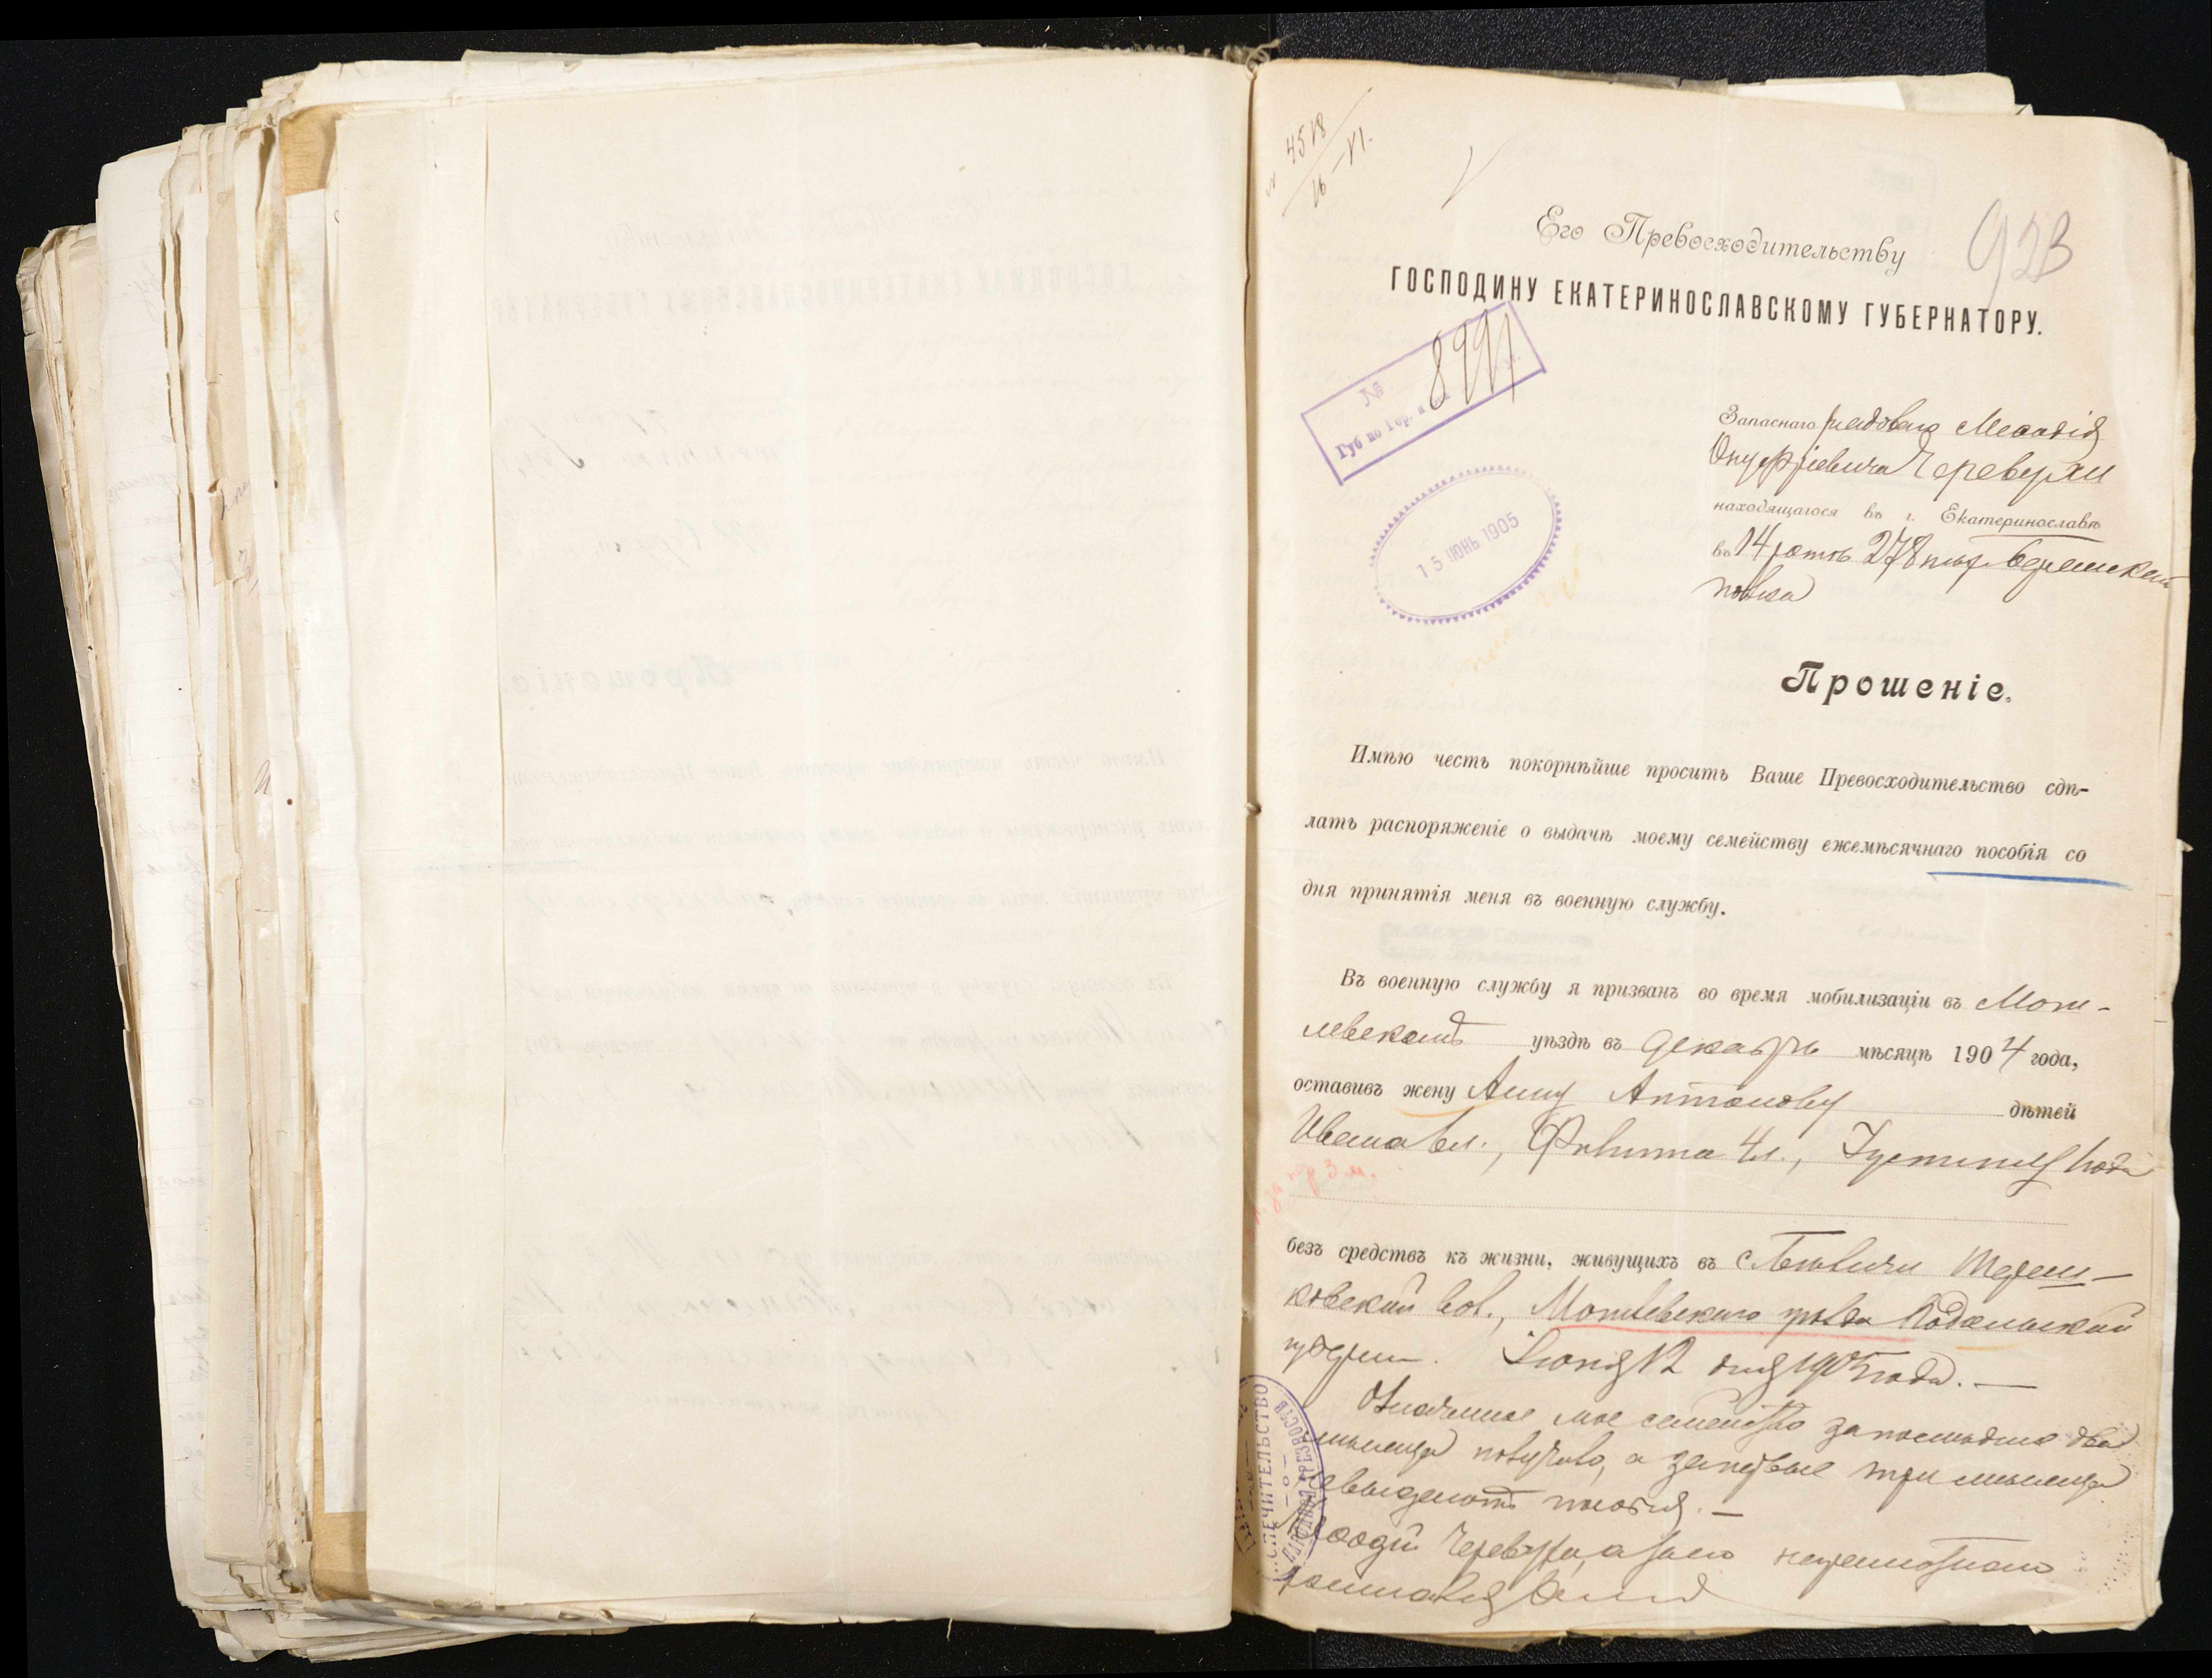 4518
16-VI.
Его Превосходительству
923
ГОСПОДИНУ ЕКАТЕРИНОСЛАВСКОМУ ГУБЕРНАТОРУ.
№ 8991
Губ по Гор. и
15 ИЮНЬ 1905
Запаснаго рядоваго Меѳодія
Онуфріевича Череверхи
находящагося въ г. Екатеринославѣ
въ 14 ротѣ 278 пѣх.
полка
Прошеніе.
Имѣю честь покорнѣйше просить Ваше Превосходительство сдѣ-
лать распоряженіе о выдачѣ моему семейству ежемѣсячнаго пособія со
дня принятія меня въ военную службу.
Въ военную службу я призванъ во время мобилизаціи въ Моги-
левскомъ уѣздѣ въ декабрѣ мѣсяцѣ 1904 года,
оставивъ жену Анну Антонову дѣтей
Ивана 6 л., 4 л., Устинія
за пер 3 м.
безъ средствъ къ жизни, живущихъ въ с.
вол., Могилевскаго уѣзда Подольской
губерніи. Іюня 12 дня 1905 года. —
Означенное мое семейство за послѣдніе два
мѣсяца получало, а за первые три мѣсяца
пособія. —
а за него неграмотнаго
ПОПЕЧИТЕЛЬСТВО
ТРЕЗВОСТИ